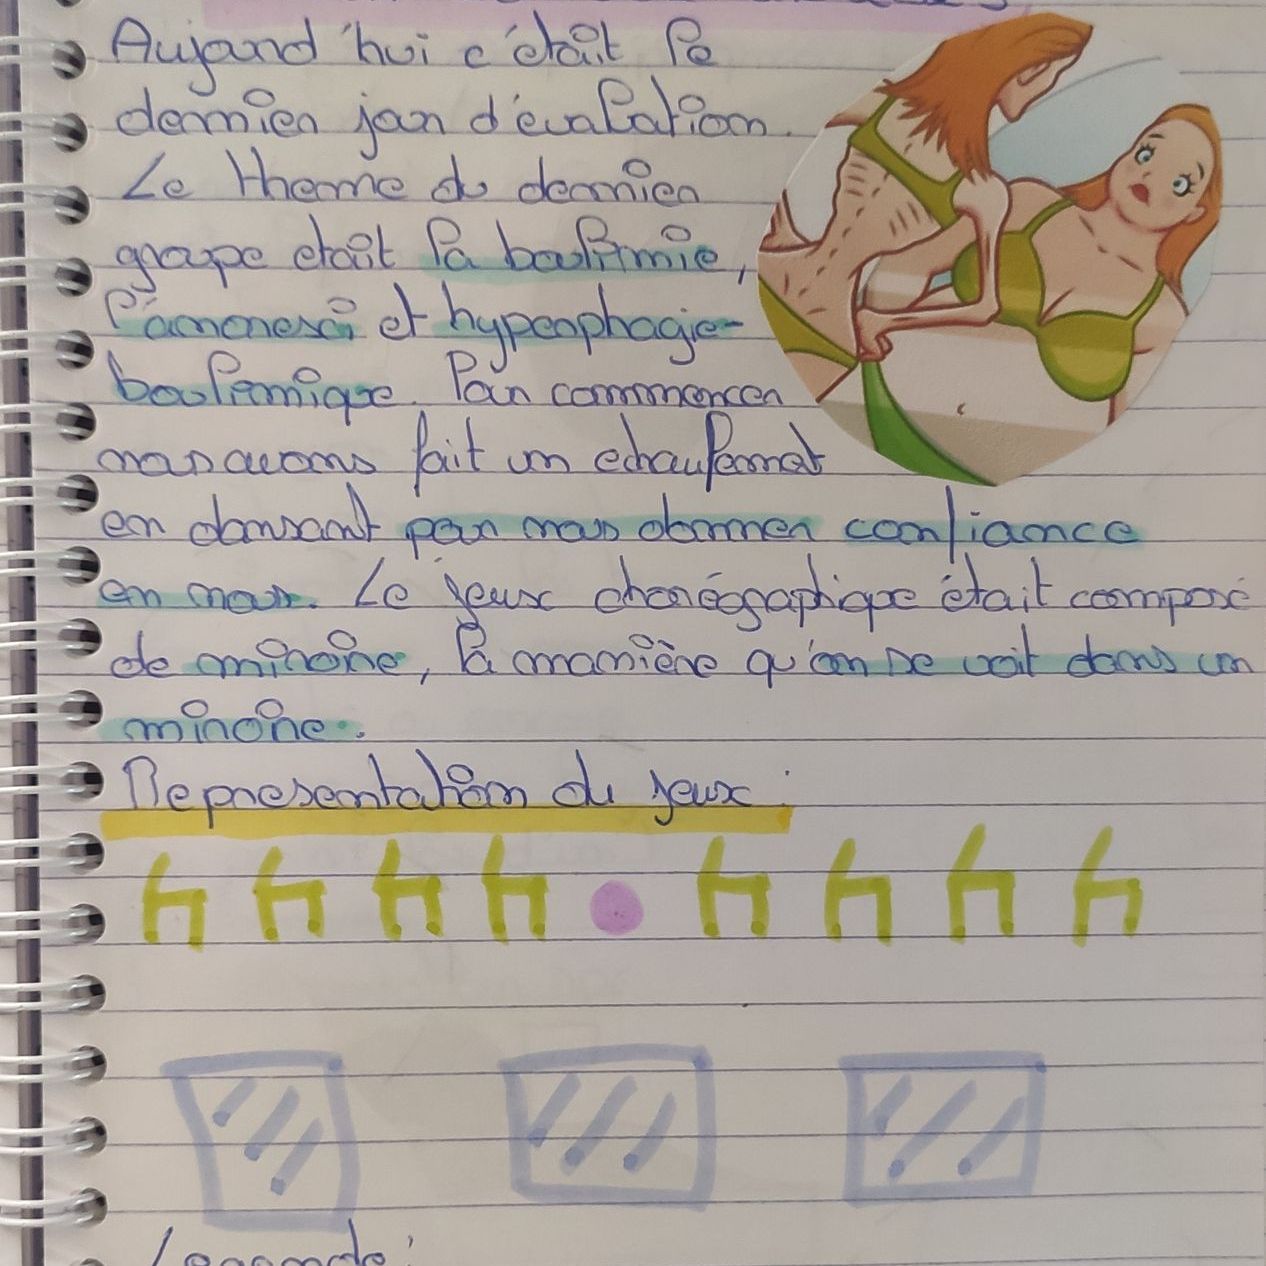 Aujourd'hui c'était le
dernier jour d'évaluation.
Le theme du dernier
groupe etait la boulimie,
l'anorexi, et hyperphagie-
boulimique. Pour commencer
nous avons fait un echaufemnet
en dansant pour nous donner confiance
en nous. Le jeux chorégraphique était composé
de miroire, la manière qu'on se voit dans un
miroire.
Representation du jeux :
Legende :